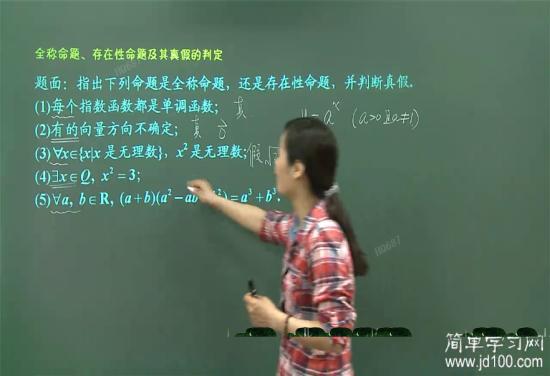 全称命题、存在性命题及其真假的判定
题面：指出下列命题是全称命题，还是存在性命题，并判断真假。
(1)每个指数函数都是单调函数； 真 = aˣ (a>0且a≠1)
(2)有的向量方向不确定； 真 0⃗
(3)∀x∈{x|x 是无理数}，x²是无理数； 假
(4)∃x∈Q，x²=3；
(5)∀a，b∈R，(a+b)(a²−ab ²)=a³+b³.
H0687
H0687
简单学习网
www.jd100.com